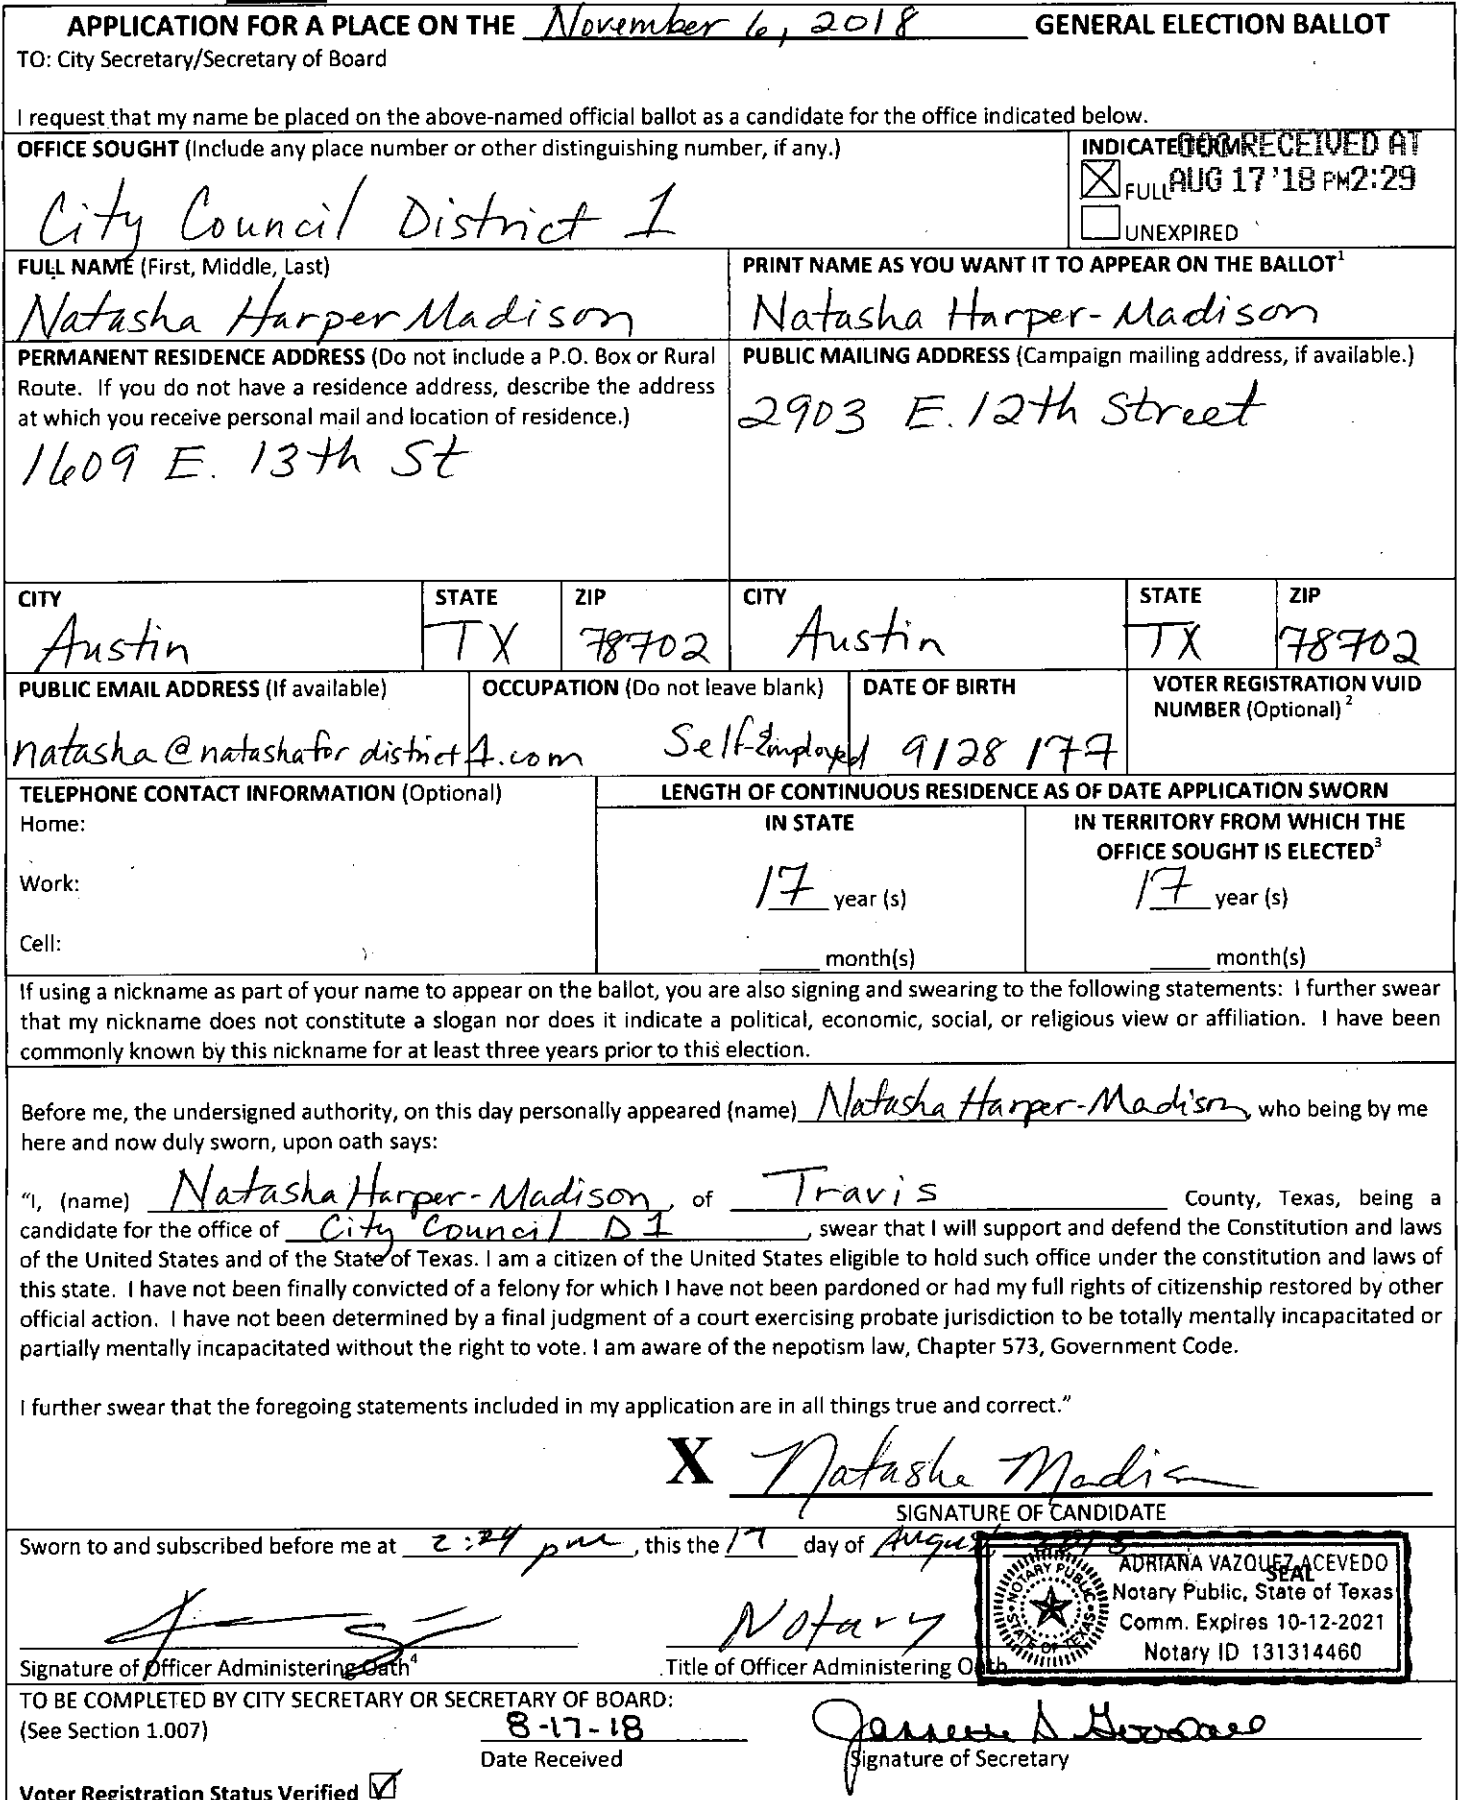 APPLICATION FOR A PLACE ON THE November 6, 2018 GENERAL ELECTION BALLOT
TO: City Secretary/Secretary of Board
I request that my name be placed on the above-named official ballot as a candidate for the office indicated below.
OFFICE SOUGHT (Include any place number or other distinguishing number, if any.)
City Council District 1
INDICATE TERM
OCC RECEIVED AT
FULL AUG 17 '18 PM2:29
UNEXPIRED
FULL NAME (First, Middle, Last)
Natasha Harper Madison
PRINT NAME AS YOU WANT IT TO APPEAR ON THE BALLOT1
Natasha Harper-Madison
PERMANENT RESIDENCE ADDRESS (Do not include a P.O. Box or Rural
Route. If you do not have a residence address, describe the address
at which you receive personal mail and location of residence.)
1609 E. 13th St
PUBLIC MAILING ADDRESS (Campaign mailing address, if available.)
2903 E. 12th Street
CITY STATE ZIP CITY STATE ZIP
Austin TX 78702 Austin TX 78702
PUBLIC EMAIL ADDRESS (If available)
natasha@natashafordistrict1.com
OCCUPATION (Do not leave blank)
Self-Employed
DATE OF BIRTH
9/28/77
VOTER REGISTRATION VUID
NUMBER (Optional) 2
TELEPHONE CONTACT INFORMATION (Optional)
Home:
Work:
Cell:
LENGTH OF CONTINUOUS RESIDENCE AS OF DATE APPLICATION SWORN
IN STATE
17 year (s)
month(s)
IN TERRITORY FROM WHICH THE
OFFICE SOUGHT IS ELECTED3
17 year (s)
month(s)
If using a nickname as part of your name to appear on the ballot, you are also signing and swearing to the following statements: I further swear
that my nickname does not constitute a slogan nor does it indicate a political, economic, social, or religious view or affiliation. I have been
commonly known by this nickname for at least three years prior to this election.
Before me, the undersigned authority, on this day personally appeared (name) Natasha Harper-Madison, who being by me
here and now duly sworn, upon oath says:
"I, (name) Natasha Harper-Madison, of Travis County, Texas, being a
candidate for the office of City Council D1, swear that I will support and defend the Constitution and laws
of the United States and of the State of Texas. I am a citizen of the United States eligible to hold such office under the constitution and laws of
this state. I have not been finally convicted of a felony for which I have not been pardoned or had my full rights of citizenship restored by other
official action. I have not been determined by a final judgment of a court exercising probate jurisdiction to be totally mentally incapacitated or
partially mentally incapacitated without the right to vote. I am aware of the nepotism law, Chapter 573, Government Code.
I further swear that the foregoing statements included in my application are in all things true and correct."
X Natasha Madison
SIGNATURE OF CANDIDATE
Sworn to and subscribed before me at 2:24 pm, this the 17 day of August 2018
SEAL
NOTARY PUBLIC STATE OF TEXAS
ADRIANA VAZQUEZ ACEVEDO
Notary Public, State of Texas
Comm. Expires 10-12-2021
Notary ID 131314460
Notary
Signature of Officer Administering Oath4 Title of Officer Administering Oath
TO BE COMPLETED BY CITY SECRETARY OR SECRETARY OF BOARD:
(See Section 1.007) 8-17-18
Date Received Signature of Secretary
Voter Registration Status Verified